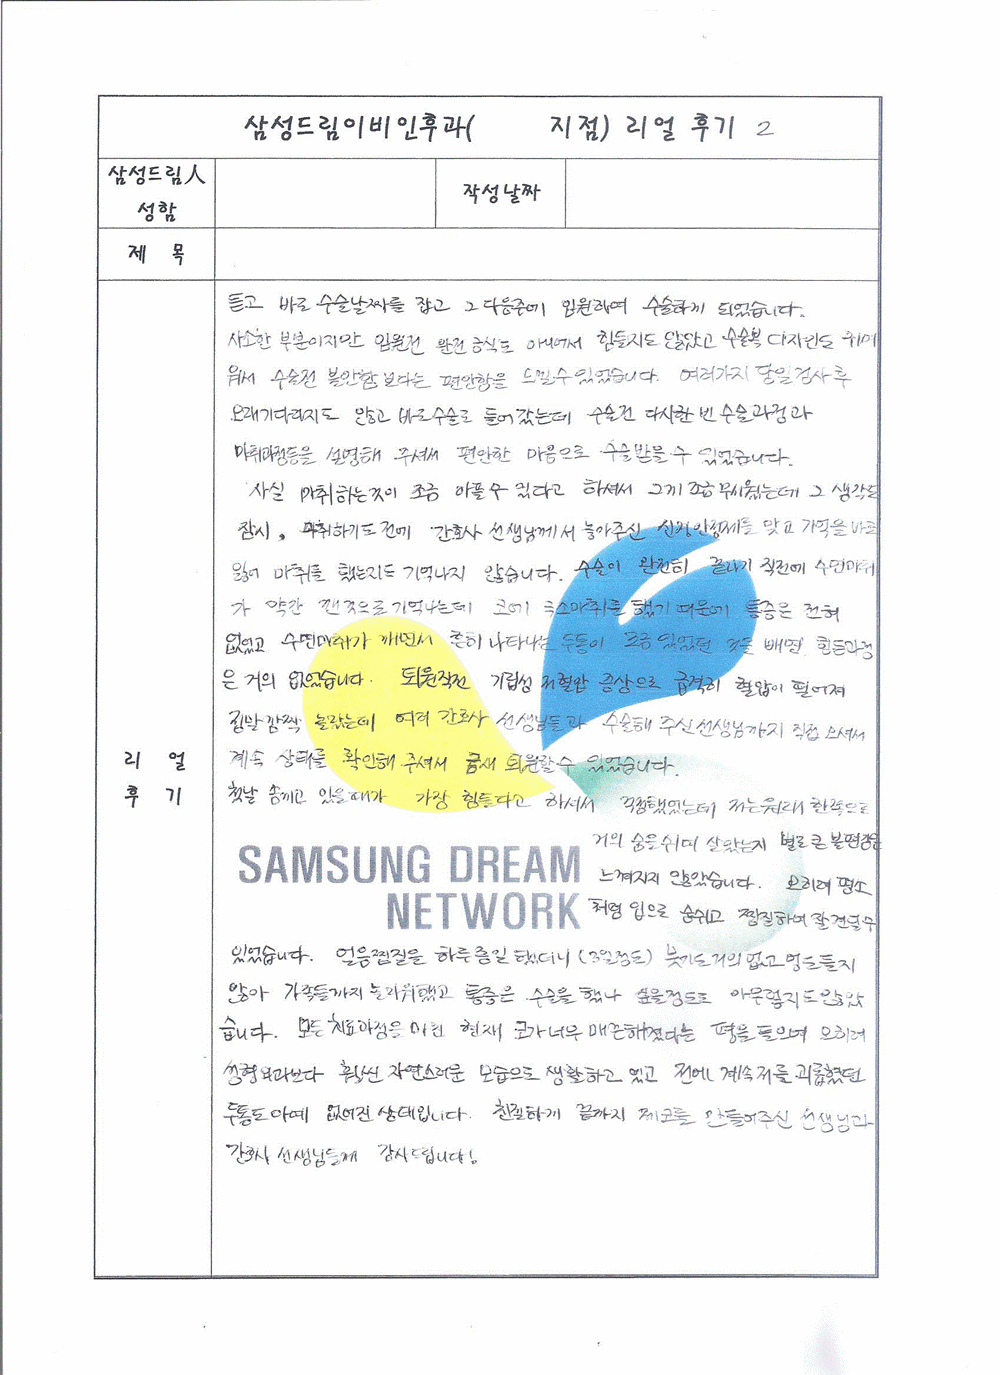 삼성드림이비인후과(          지점) 리얼 후기 2
삼성드림人
성함
작성날짜
제 목
리 얼
후 기
듣고 바로 수술날짜를 잡고 그 다음주에 입원하여 수술하게 되었습니다.
사소한 부분이지만 입원전 완전 금식도 아니어서 힘들지도 않았고 수술복 디자인도 귀여
워서 수술전 불안함 보다는 편안함을 느낄수 있었습니다. 여러가지 당일 검사 후
오래기다리지도 않고 바로수술로 들어 갔는데 수술전 다시한번 수술과정과
마취과정등을 설명해 주셔서 편안한 마음으로 수술받을 수 있었습니다.
사실 마취하는것이 조금 아플수 있다고 하셔서 그게 조금 무서웠는데 그 생각도
잠시, 마취하기도 전에 간호사 선생님께서 놓아주신 신경안정제를 맞고 기억을 바로
잃어 마취를 했는지도 기억나지 않습니다. 수술이 완전히 끝나기 직전에 수면마취
가 약간 깬것으로 기억나는데 코에 국소마취를 했기 때문에 통증은 전혀
없었고 수면마취가 깨면서 흔히 나타나는 두통이 조금 있었던 것을 빼면 힘든과정
은 거의 없었습니다. 퇴원직전 기립성 저혈압 증상으로 급격히 혈압이 떨어져
깜짝 놀랐는데 여러 간호사 선생님들과 수술해 주신선생님까지 직접 오셔서
계속 상태를 확인해 주셔서 금새 퇴원할수 있었습니다.
첫날 솜끼고 있을때가 가장 힘들다고 하셔서 걱정했었는데 저는원래 한쪽으로
거의 숨을쉬며 살았는지 별로 큰 불편감을
느껴지지 않았습니다. 오히려 평소
처럼 입으로 숨쉬고 찜질하며 잘 견딜수
SAMSUNG DREAM
NETWORK
있었습니다. 얼음찜질을 하루종일 했더니 (3일정도) 붓기도거의 없고 멍도들지
않아 가족들까지 놀라워했고 통증은 수술을 했나 싶을정도로 아무렇지도않았
습니다. 모든 치료과정을 마친 현재 코가너무 매끈해졌다는 평을 들으며 오히려
성형외과보다 훨씬 자연스러운 모습으로 생활하고 있고 전에 계속저를 괴롭혔던
두통도 아예 없어진 상태입니다. 친절하게 끝까지 제코를 만들어주신 선생님과
간호사 선생님들께 감사드립니다!